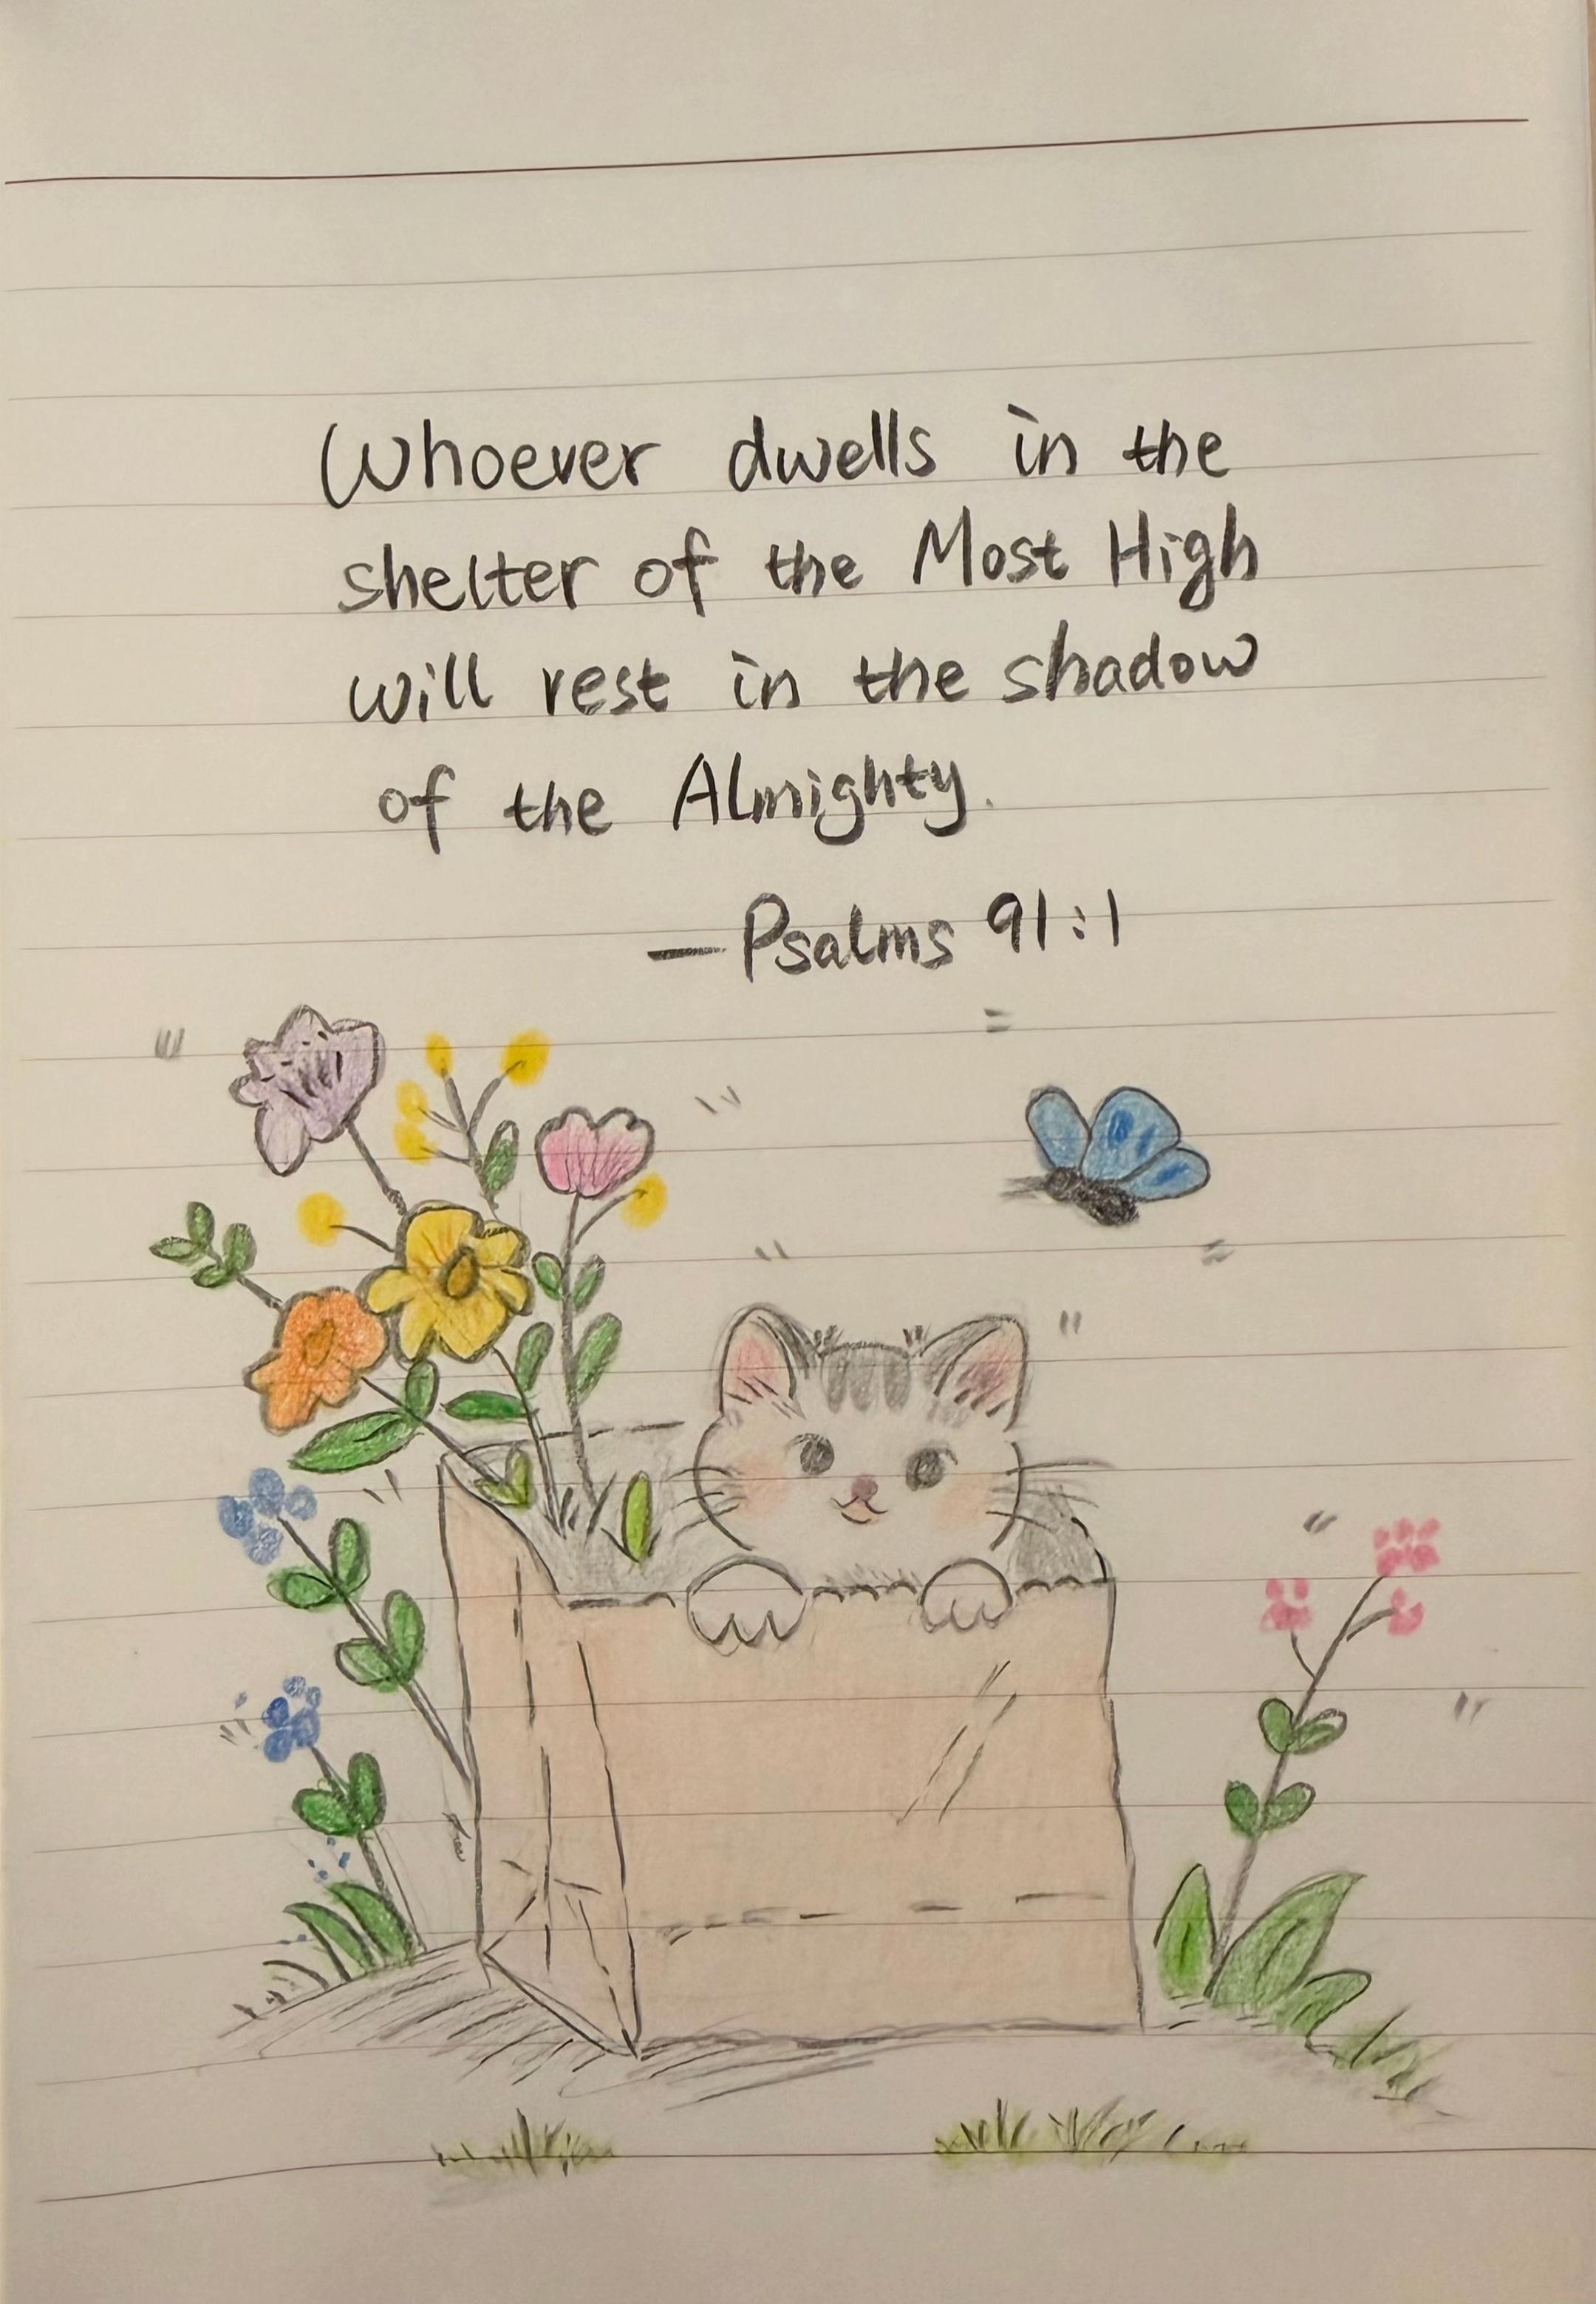 Whoever dwells in the
shelter of the Most High
will rest in the shadow
of the Almighty.
—Psalms 91:1